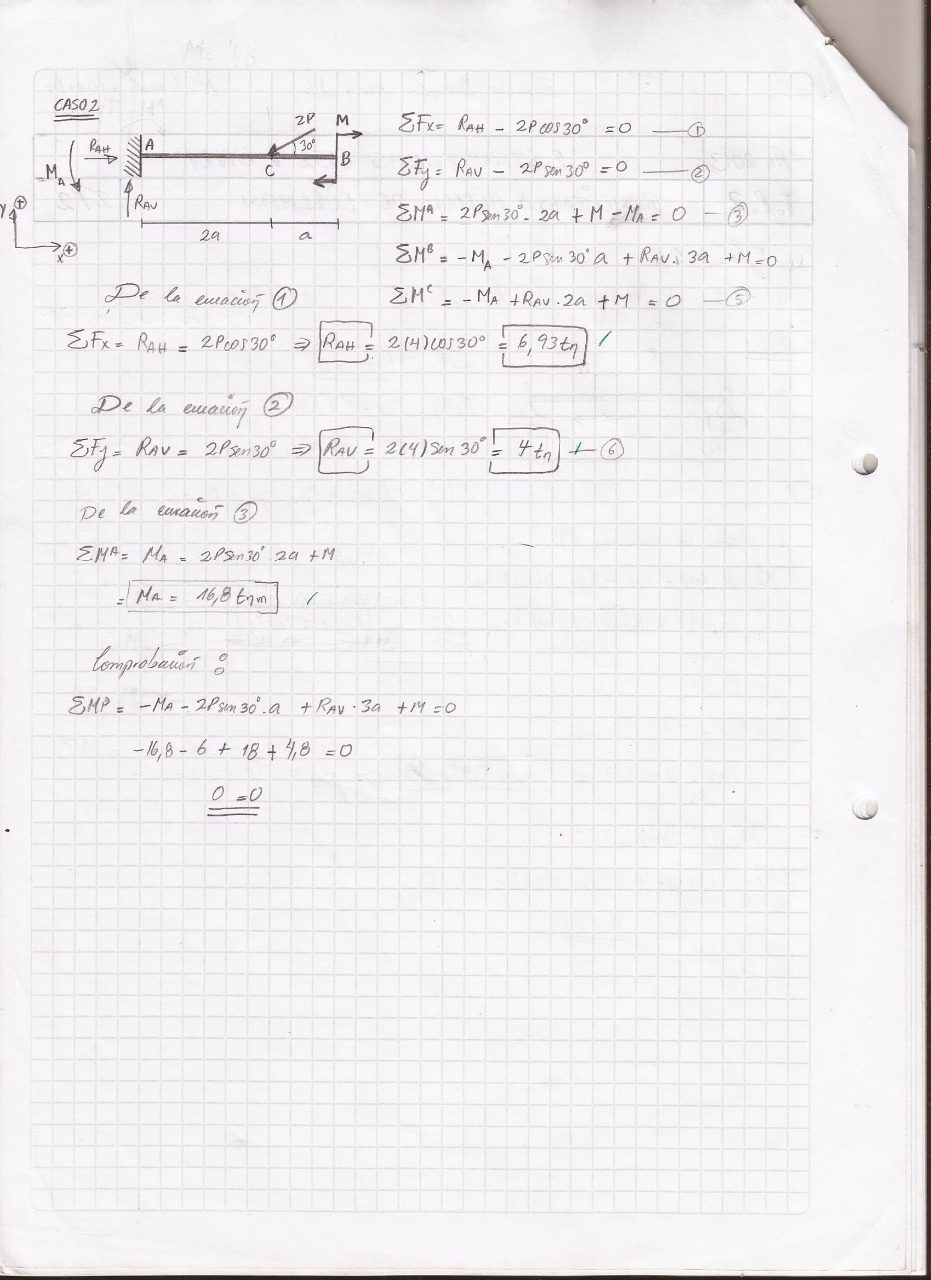 CASO 2
2P
M
30°
A
B
C
RAH
MA
RAV
y
x
2a
a
ΣFx = RAH - 2Pcos30° = 0 — ①
ΣFy = RAV - 2Psen30° = 0 — ②
ΣMᴬ = 2Psen30°. 2a + M - MA = 0 — ③
ΣMᴮ = -MA - 2Psen30°a + RAV. 3a + M = 0
ΣMᶜ = -MA + RAV. 2a + M = 0 — ⑤
De la ecuación ①
ΣFx = RAH = 2Pcos30° ⇒ RAH = 2(4)cos30° = 6,93tn
De la ecuación ②
ΣFy = RAV = 2Psen30° ⇒ RAV = 2(4)sen30° = 4tn — ⑥
De la ecuación ③
ΣMᴬ = MA = 2Psen30° 2a + M
= MA = 16,8 tnm
Comprobación :
ΣMP = -MA - 2Psen30°.a + RAV. 3a + M = 0
-16,8 - 6 + 18 + 4,8 = 0
0 = 0